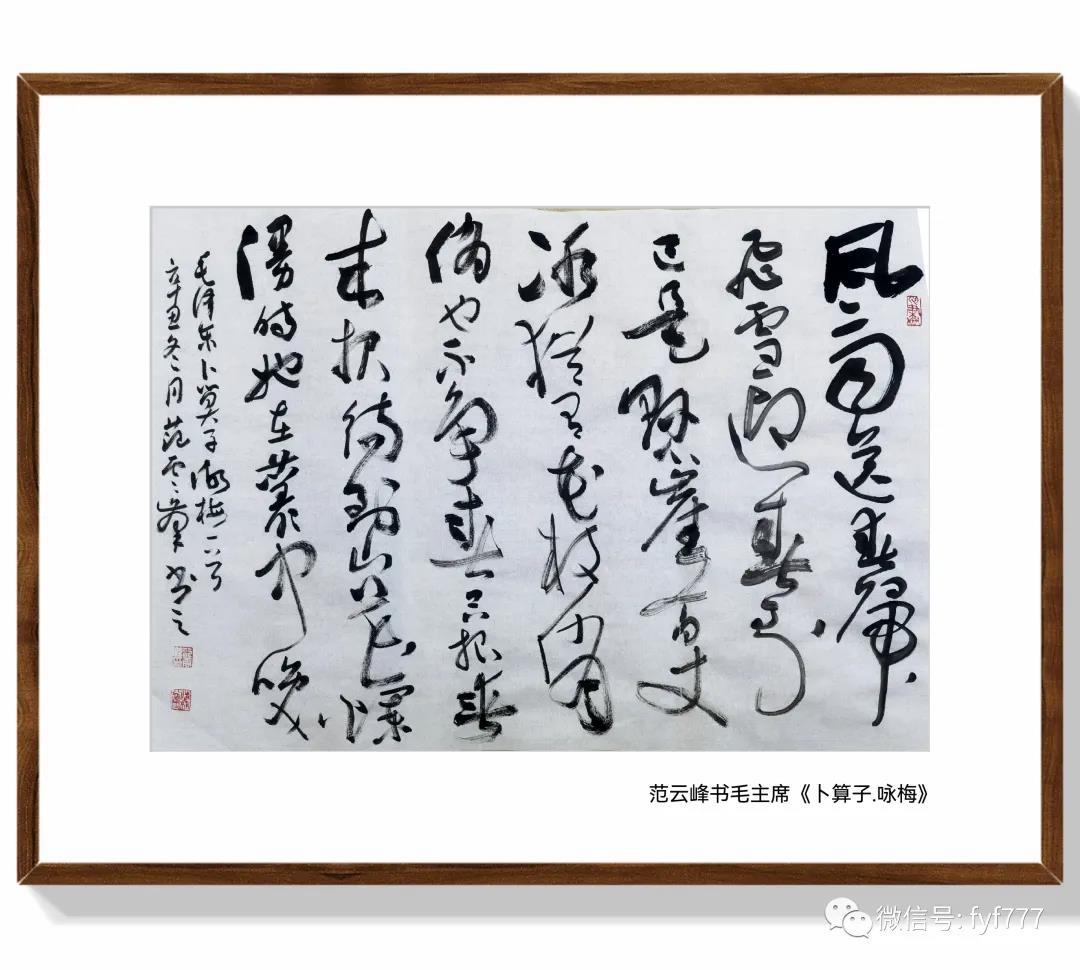 风雨送春归
飞雪迎春到
已是悬崖百丈
冰犹有花枝俏
俏也不争春只报春
来报待到山花烂
漫时她在丛中笑
毛泽东卜算子咏梅一首
辛丑冬月范云峰书之
范云峰书毛主席《卜算子.咏梅》
微信号: fyf777